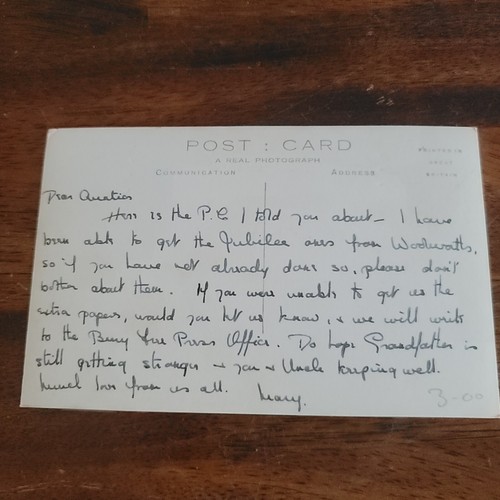 POST : CARD
A REAL PHOTOGRAPH
COMMUNICATION
ADDRESS
PRINTED IN
GREAT
BRITAIN
Dear Aunties
Here is the P.C I told you about - I have
been able to get the Jubilee ones from Woolworths,
so if you have not already done so, please don't
bother about them. If you were unable to get us the
extra papers, would you let us know, & we will write
to the Bury Free Press Office. Do hope Grandfather is
still getting stronger & you & Uncle keeping well.
Much love from us all. Mary.
3-00